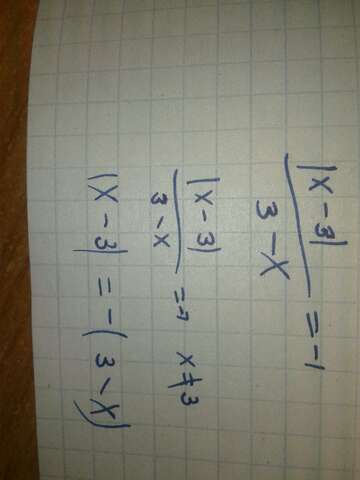 |x-3| / 3-x = -1
|x-3| / 3-x = -1 x≠3
|x-3| = -(3-x)